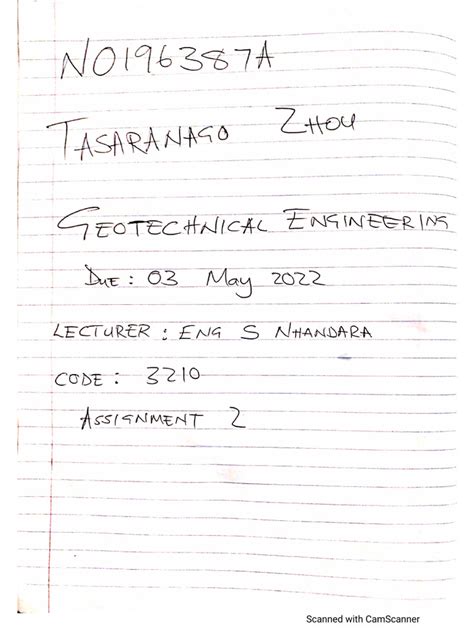 N0196387A
TASARANAGO ZHOU
GEOTECHNICAL ENGINEERING
DUE : 03 May 2022
LECTURER : ENG S NHANDARA
CODE : 3210
ASSIGNMENT 2
Scanned with CamScanner